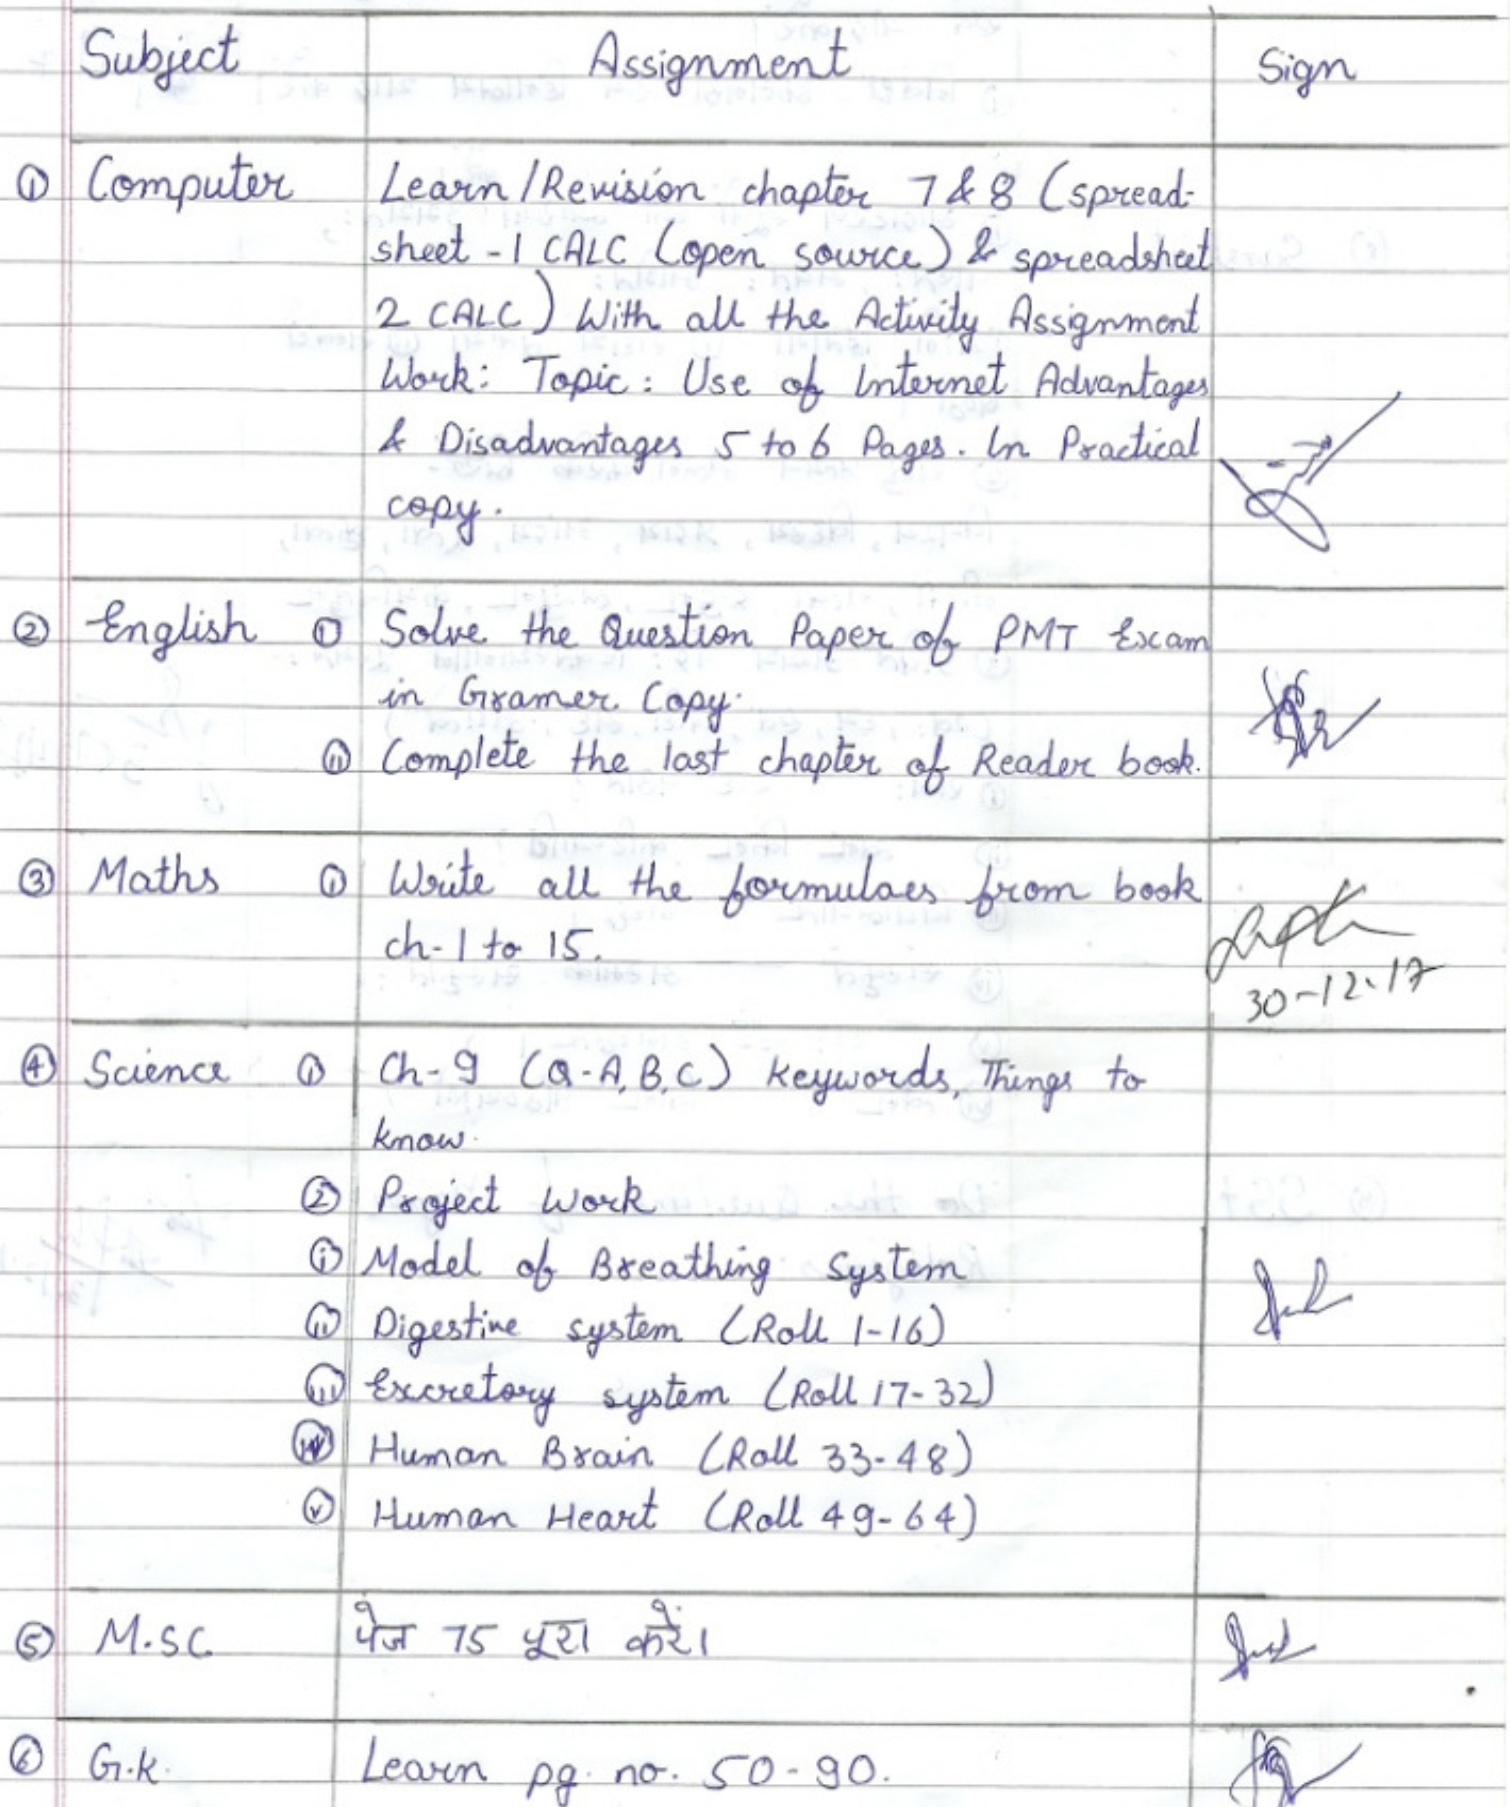 Subject Assignment Sign
① Computer Learn/Revision chapter 7 & 8 (spread-
sheet - 1 CALC (open source) & spreadsheet
2 CALC) With all the Activity Assignment
Work: Topic: Use of Internet Advantages
& Disadvantages 5 to 6 Pages. In Practical
copy.
② English ⓘ Solve the Question Paper of PMT Exam
in Gramer Copy.
ⓘⓘ Complete the last chapter of Reader book.
③ Maths ⓘ Write all the formulaes from book
ch-1 to 15.
30-12-17
④ Science ① Ch-9 (Q-A,B,C) Keywords, Things to
know.
② Project Work
ⓘ Model of Breathing System
(ii) Digestive system (Roll 1-16)
(iii) Excretory system (Roll 17-32)
(iv) Human Brain (Roll 33-48)
(v) Human Heart (Roll 49-64)
⑤ M.SC. पेज 75 पूरा करें।
⑥ G.K. Learn pg. no. 50-90.